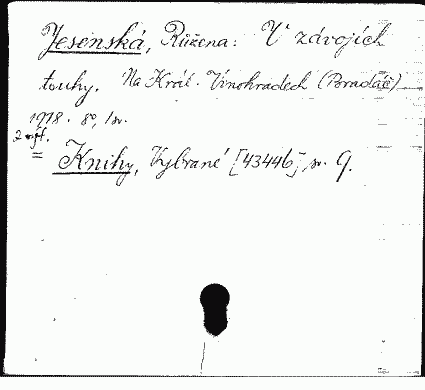 Jesenská, Růžena: V zdvojích
touhy. Na Král. Vinohradech (Poradač)
1918. 8°, 1 sv.
2 výt.
= Knihy, Vybrané [43446] sv. 9.